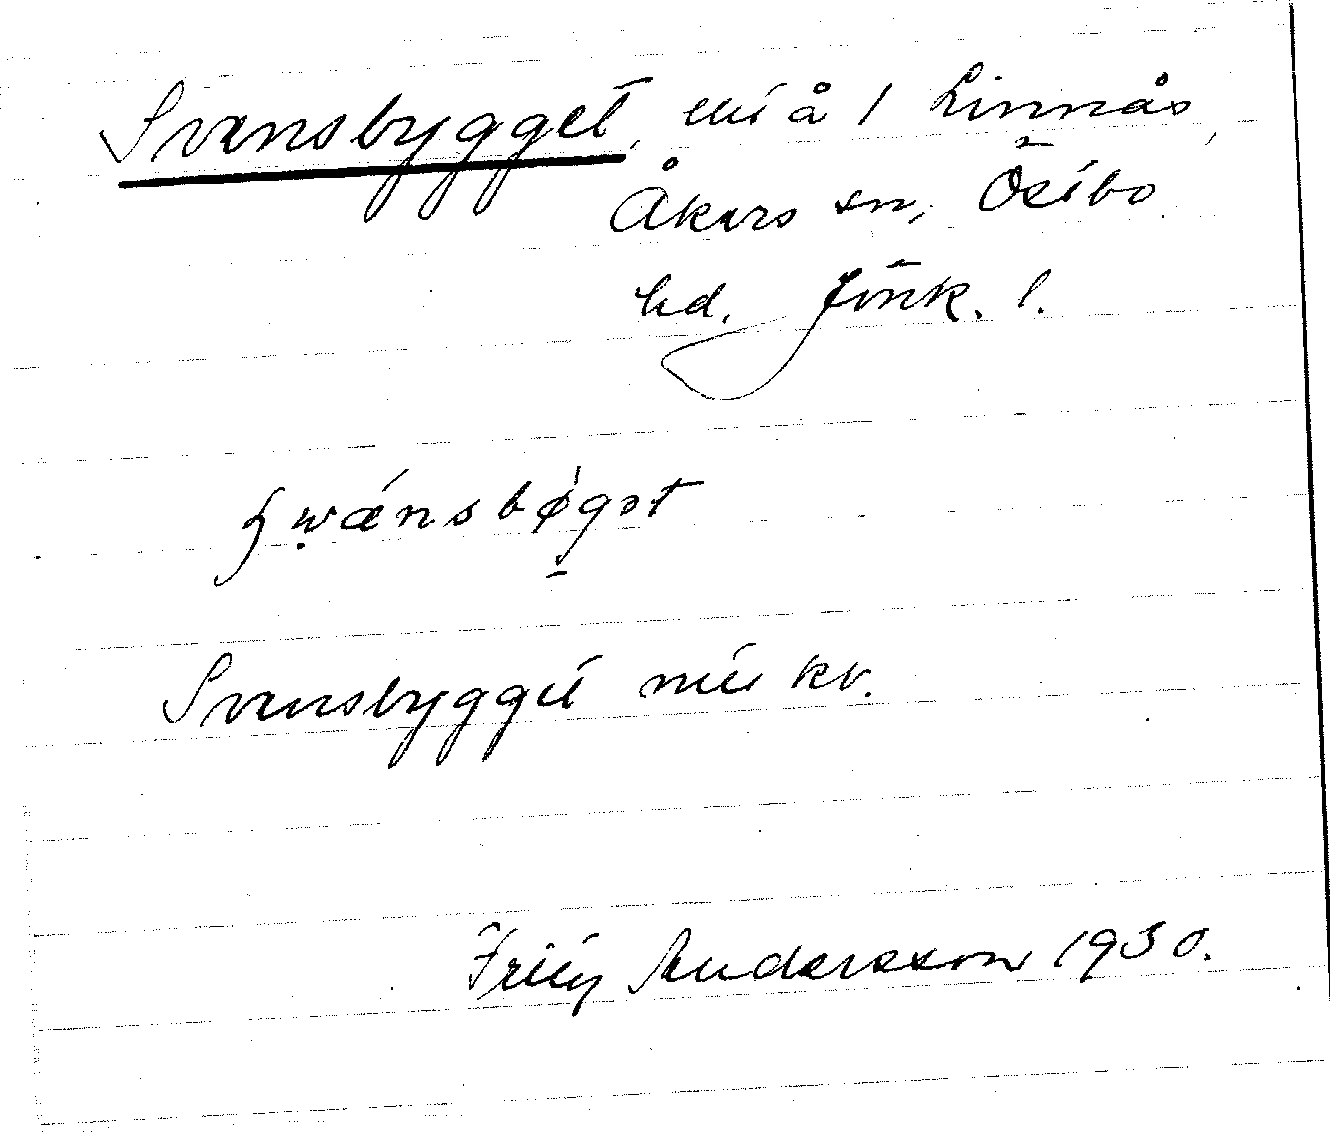 Svensbygget, utj å / Linnås,
Åkers sn, Östbo
hd. Jönk. l.
swænsbøgət
Svensbygget mtr kv.
Fritz Andersson 1930.